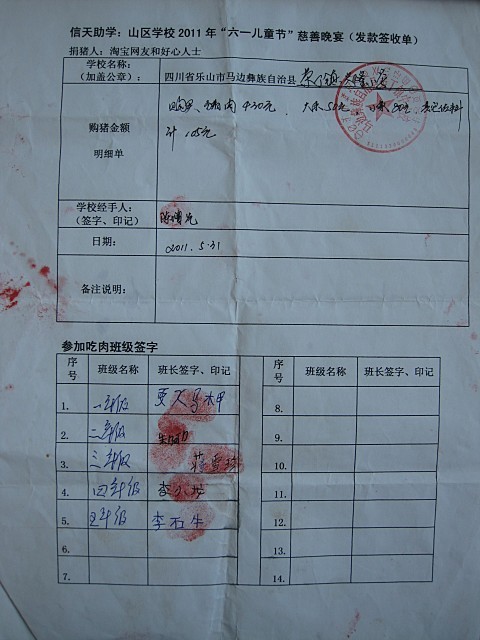 信天助学：山区学校 2011 年“六一儿童节”慈善晚宴（发款签收单）
捐猪人：淘宝网友和好心人士
学校名称：
（加盖公章）：
四川省乐山市马边彝族自治县
购猪金额
明细单
430元
计
学校经手人：
（签字、印记）
日期：
2011.5.31
备注说明：
参加吃肉班级签字
序号 班级名称 班长签字、印记 序号 班级名称 班长签字、印记
1. 一年级 8.
2. 二年级 9.
3. 三年级 10.
4. 四年级 11.
5. 五年级 李石牛 12.
6. 13.
7. 14.